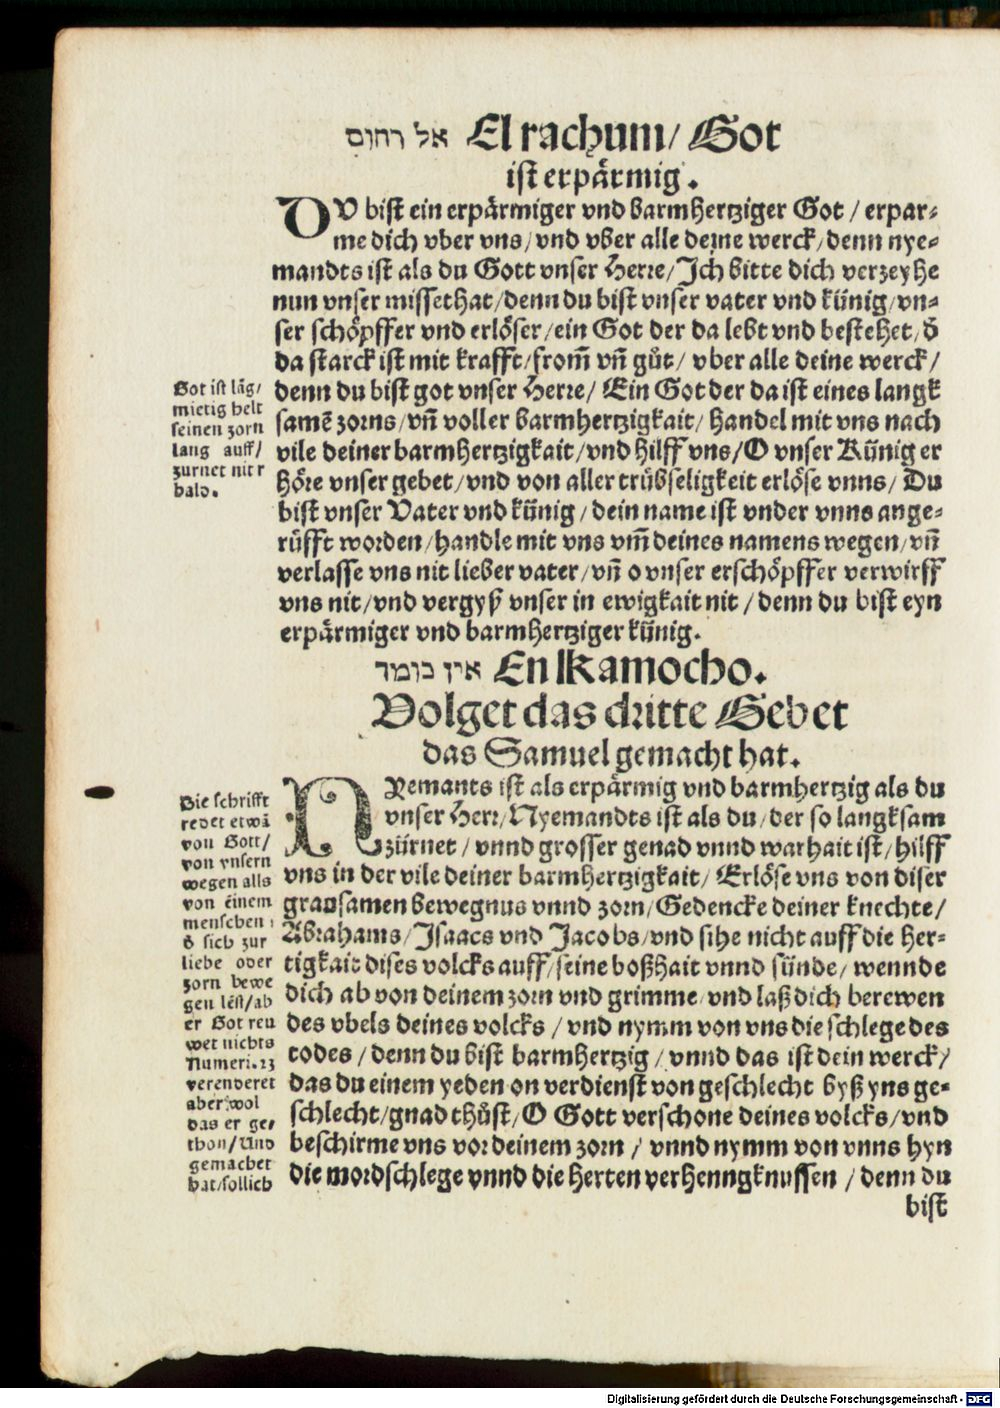 אל רחום El rachum/ Got
ist erpärmig.
DV bist ein erpärmiger vnd barmhertziger Got / erpar⸗
me dich vber vns/vnd vber alle deine werck/denn nye⸗
mandts ist als du Gott vnser Herre/Ich bitte dich verzeyhe
nun vnser missethat/denn du bist vnser vater vnd künig/vn⸗
ser schöpffer vnd erlöser/ein Got der da lebt vnd bestehet/d̄
da starck ist mit krafft/from̄ vn̄ gůt/ vber alle deine werck/
denn du bist got vnser Herre/ Ein Got der da ist eines langk
samē zorns/vn̄ voller barmhertzigkait/ handel mit vns nach
vile deiner barmhertzigkait/vnd hilff vns/O vnser Künig er
höre vnser gebet/vnd von aller trübseligkeit erlöse vnns/ Du
bist vnser Vater vnd künig / dein name ist vnder vnns ange⸗
rüfft worden/handle mit vns vm̄ deines namens wegen/vn̄
verlasse vns nit lieber vater/vn̄ o vnser erschöpffer verwirff
vns nit/vnd vergyß vnser in ewigkait nit / denn du bist eyn
erpärmiger vnd barmhertziger künig.
Got ist lāg/
mietig helt
seinen zorn
lang auff/
zurnet nit r
bald.
אין כומך En Kamocho.
Volget das dritte Gebet
das Samuel gemacht hat.
NYemants ist als erpärmig vnd barmhertzig als du
vnser Herr/Nyemandts ist als du/der so langksam
zürnet / vnnd grosser genad vnnd warhait ist/hilff
vns in der vile deiner barmhertzigkait/ Erlöse vns von diser
grausamen bewegnus vnnd zorn/Gedencke deiner knechte/
Abrahams/Isaacs vnd Jacobs/vnd sihe nicht auff die her⸗
tigkait dises volcks auff/seine boßhait vnnd sünde/wennde
dich ab von deinem zorn vnd grimme/vnd laß dich berewen
des vbels deines volcks / vnd nymm von vns die schlege des
todes / denn du bist barmhertzig / vnnd das ist dein werck/
das du einem yeden on verdienst von geschlecht byß yns ge⸗
schlecht/gnad thůst/O Gott verschone deines volcks/vnd
beschirme vns vor deinem zorn / vnnd nymm von vnns hyn
die mordschlege vnnd die herten verhenngknussen / denn du
bist
Die schrifft
redet etwā
von Gott/
von vnsern
wegen alls
von einem
menschen/
d̄ sich zur
liebe oder
zorn bewe
gen lest/ab
er Got reu
wet nichts
Numeri.23
verenderet
aber wol
das er ge/
thon/Und
gemachet
hat/sollich
Digitalisierung gefördert durch die Deutsche Forschungsgemeinschaft - DFG